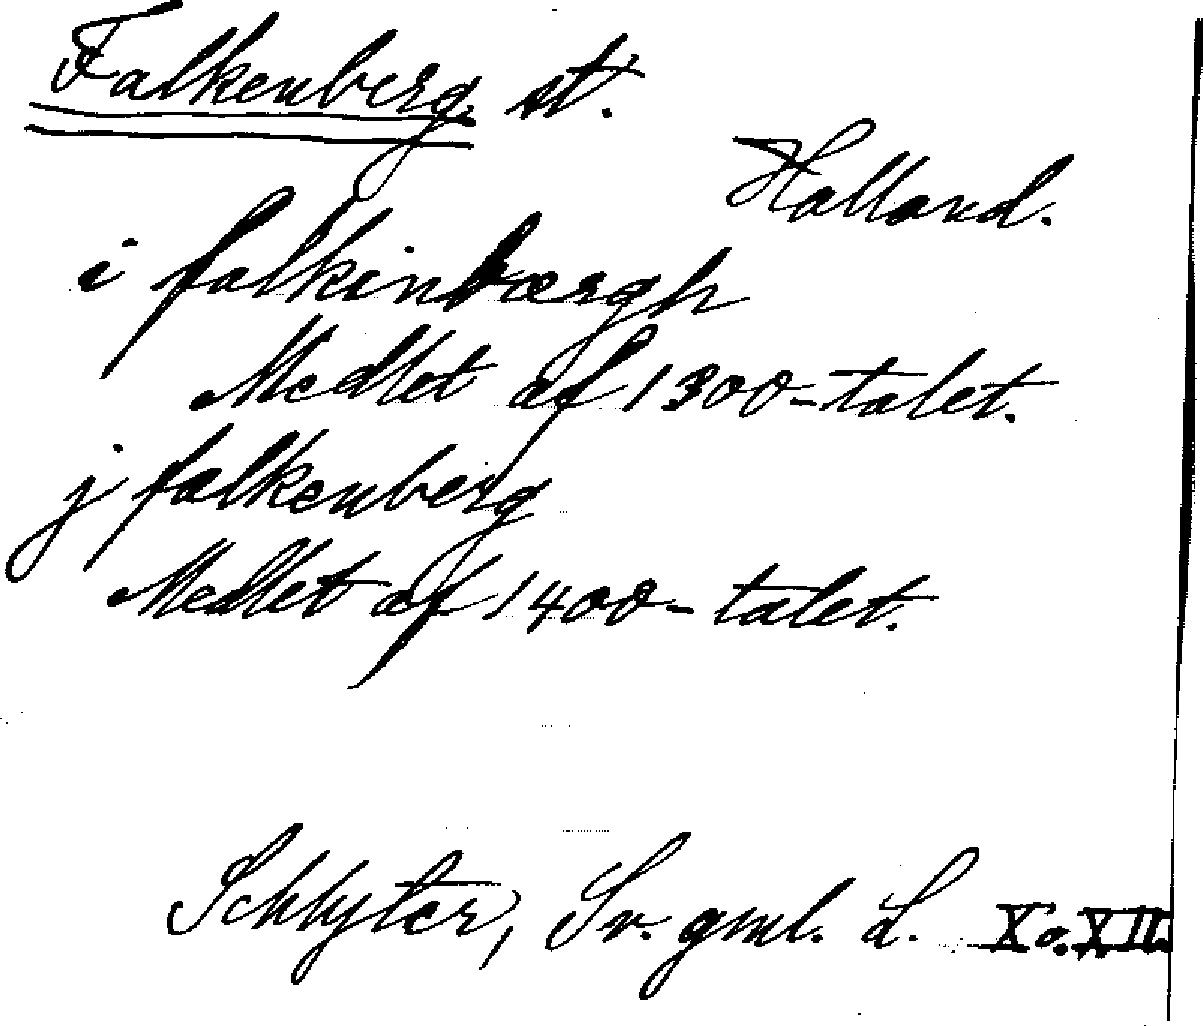 Falkenberg st.
Halland.
i falkinbærgh
Medlet af 1300-talet.
j falkenberg
Medlet af 1400-talet.
Schlyter, Sv. gml. L. X o. XII.